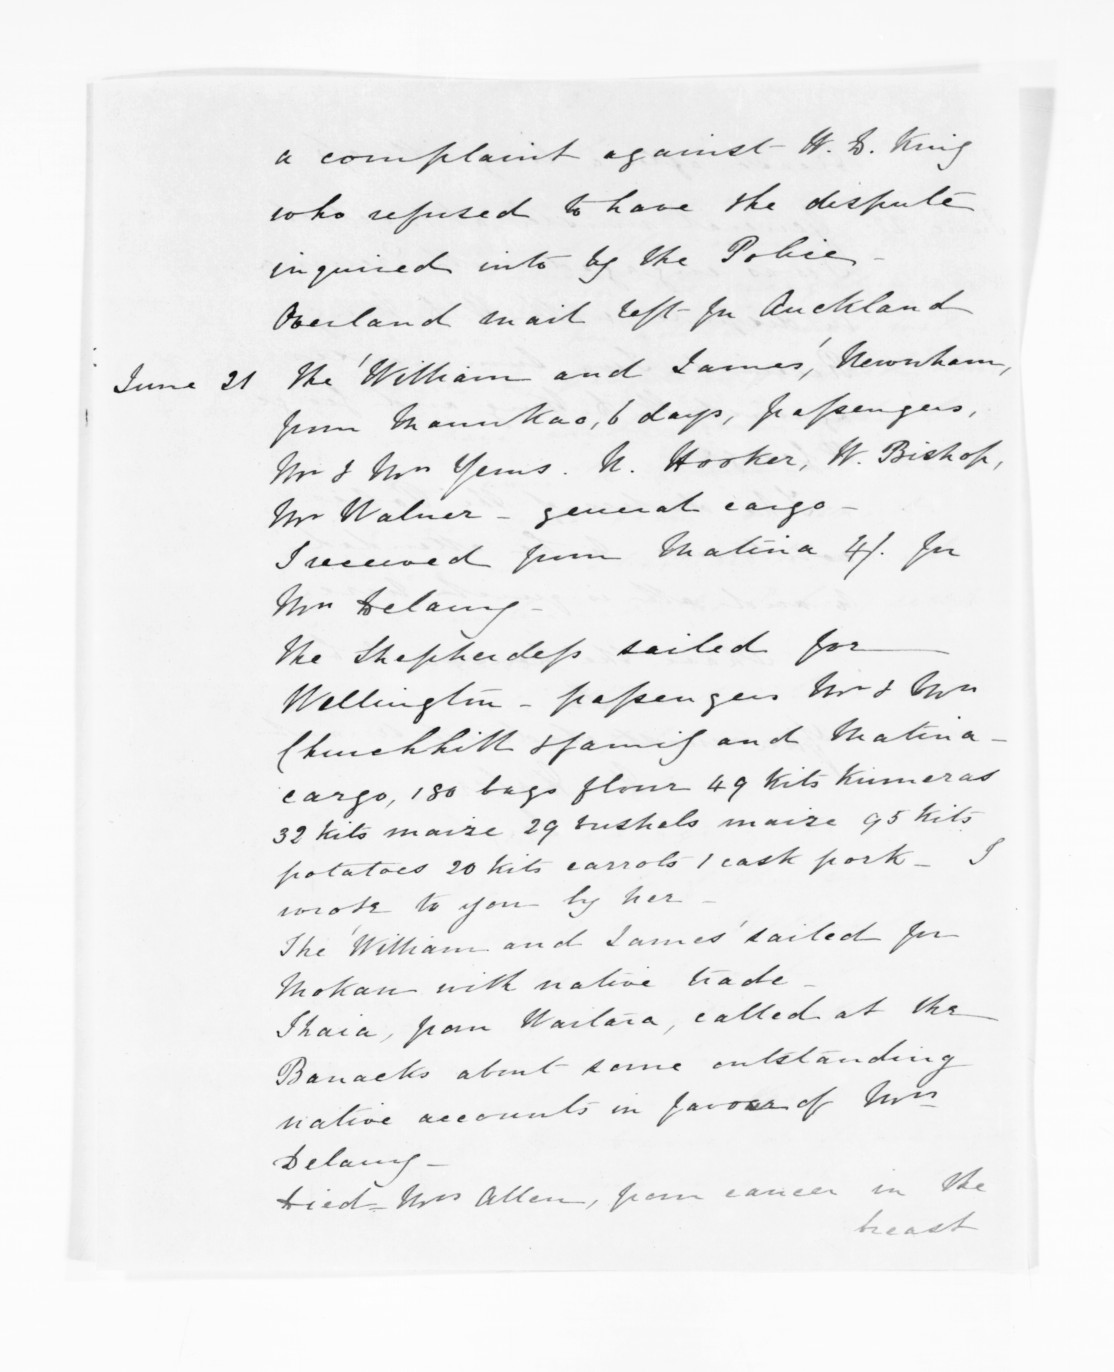 a complaint against H. D. King
who refused to have the dispute
inquired into by the Police -
Overland mail left for Auckland
June 21 The 'William and James', Newnham,
from Manukao, 6 days, passengers,
Mr & Mrs Yems. N. Hooker, W. Bishop,
Mr Walner - general cargo -
I received from Matina 4/. for
Mrs Delamy -
The Shepherdess sailed for
Wellington - passengers Mr & Mrs
Churchhill & family and Matina -
cargo, 180 bags flour 49 Kits Kumeras
32 Kits maize 29 bushels maize 95 Kits
potatoes 20 Kits carrots 1 cask pork - I
wrote to you by her -
The 'William and James' sailed for
Mokau with native trade -
Ihaia, from Waitara, called at the
Banacks about some outstanding
native accounts in favour of Mrs
Delamy -
Died - Mrs Allen, from cancer in the
breast